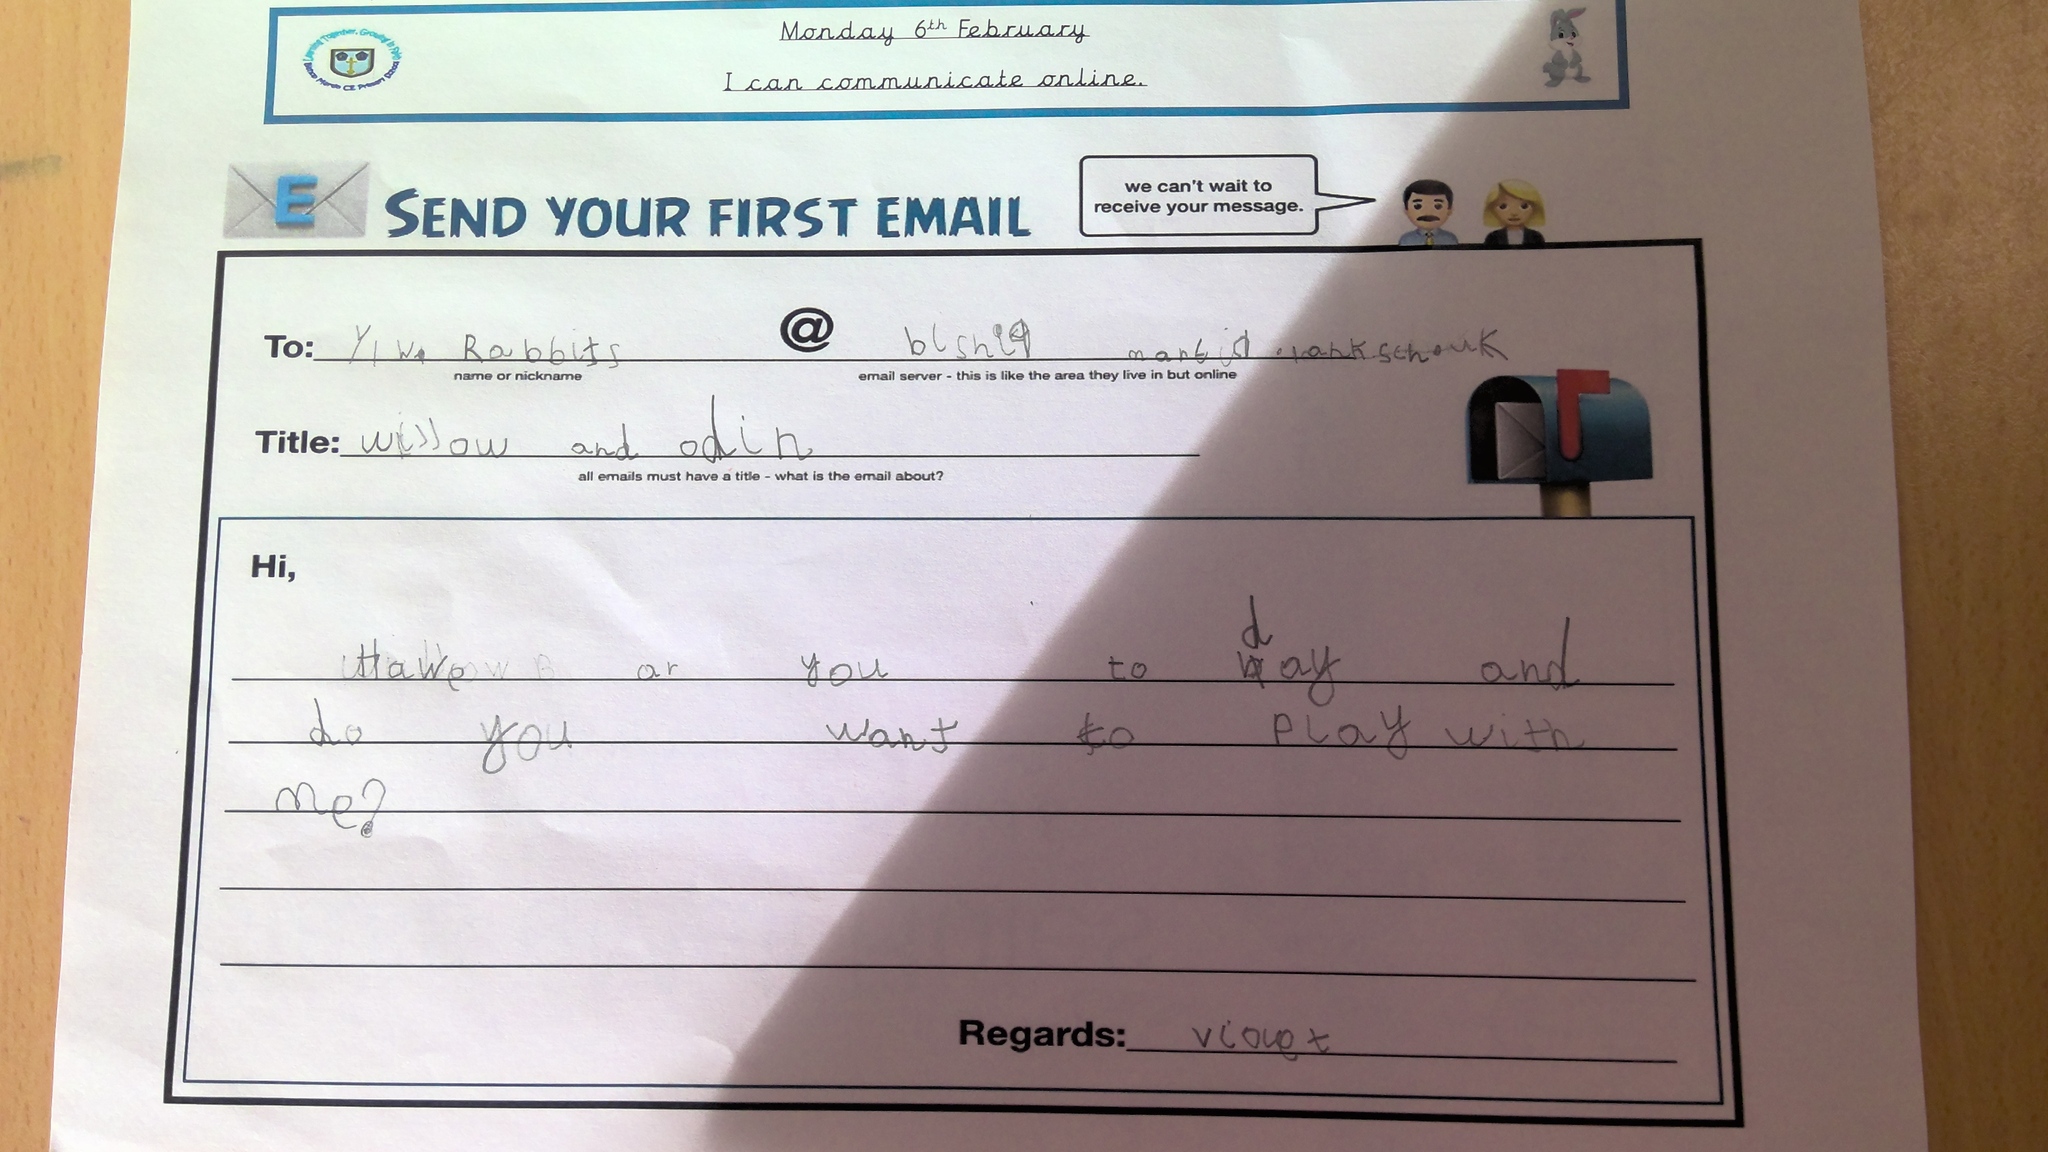 Monday 6th February
I can communicate online.
E SEND YOUR FIRST EMAIL
we can't wait to
receive your message.
To: Rabbits @
name or nickname
email server - this is like the area they live in but online
Title: willow and odin
all emails must have a title - what is the email about?
Hi,
Hawe ar you to day and
do you want to play with
me?
Regards: violet